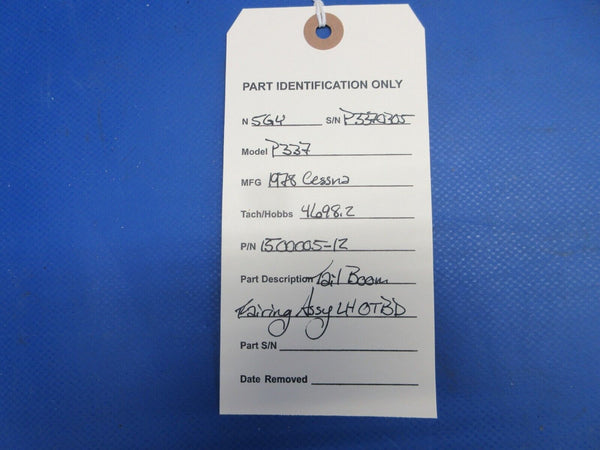 PART IDENTIFICATION ONLY
N 5GY S/N P3370305
Model P337
MFG 1978 Cessna
Tach/Hobbs 4698.2
P/N 1500005-12
Part Description Tail Boom
Fairing Assy LH OTBD
Part S/N
Date Removed